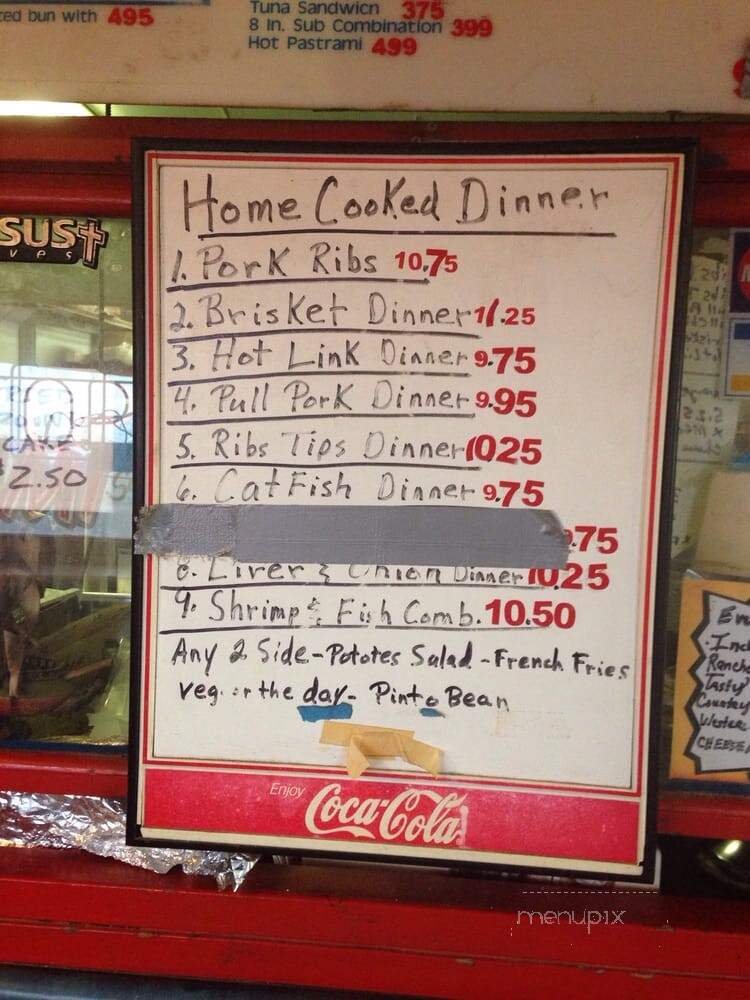 ced bun with 495
Tuna Sandwich 375
8 In. Sub Combination 399
Hot Pastrami 499
SUS
V P S
CAKE
$2.50
Home Cooked Dinner
1. Pork Ribs 10.75
2. Brisket Dinner 11.25
3. Hot Link Dinner 9.75
4. Pull Pork Dinner 9.95
5. Ribs Tips Dinner 1025
6. CatFish Dinner 9.75
.75
8. Liver & Onion Dinner 10.25
9. Shrimp & Fish Comb. 10.50
Any 2 Side - Pototes Salad - French Fries
veg. or the day - Pinto Bean
Enjoy
Coca-Cola
Ranch
Tasty
Country
Wester
CHEESE
menupix